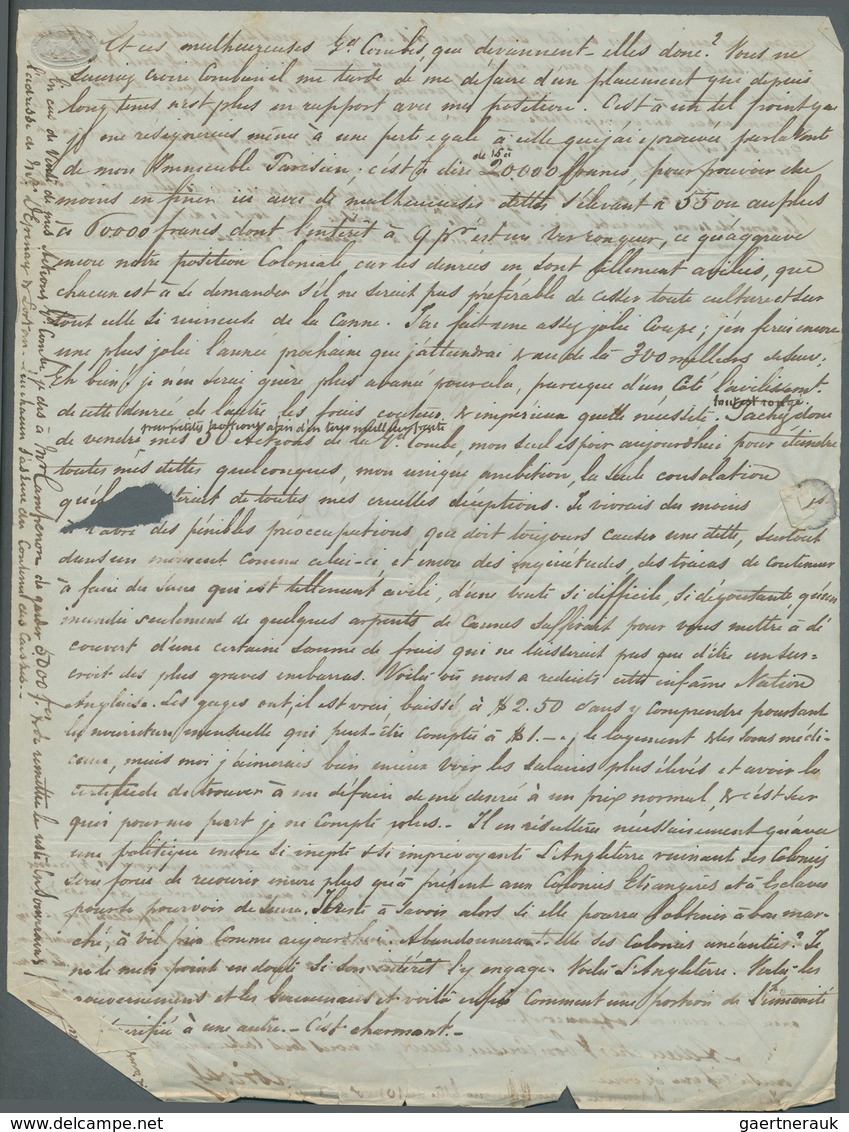 Et ces malheureuses Gd Combes que deviennent-elles donc? Vous ne
sauriez croire combien il me tarde de me défaire d'un placement qui depuis
long tems n'est plus en rapport avec ma position. C'est à un tel point que
je me resignerais même à une perte égale à celle que j'ai eprouvée par la vente
de mon Immeuble Parisien; c'est à dire de 15 à 20000 francs, pour pouvoir au
moins en finir ici avec de malheureuses dettes s'élevant à 55 ou au plus
à 60000 francs dont l'intérêt à 9 pr est un ver rongeur, ce qui aggrave
encore notre position Coloniale car les denrées en sont tellement avilies, que
chacun est à se demander s'il ne serait pas préférable de cesser toute culture et sur
tout celle si ruineuse de la Canne. J'ai fait une assez jolie Coupe; j'en ferai encore
une plus jolie l'année prochaine que j'attendrai de la 300 milliers de sucre;
Eh bien! je n'en serai guère plus avancé pour cela, parceque d'un côté l'avilissement
de cette denrée de l'autre les frais couteux & impérieux quelle nécessité. tout est contre.
Tachez donc
de vendre mes 30 Actions de la Gd Combe, mon seul espoir aujourdhui pour éteindre
par petites portions afin d'en tirer meilleur parti
toutes mes dettes quelconques, mon unique ambition, la seule consolation
qu'il de toutes mes cruelles déceptions. Je vivrais du moins
à l'abri des pénibles préoccupations que doit toujours causer une dette, surtout
dans un moment comme celui-ci, et encore des inquiétudes, des tracas de continuer
à faire du sucre qui est tellement avili, d'une vente si difficile, si dégoutante, qu'un
incendie seulement de quelques arpents de Cannes suffirait pour vous mettre à dé
couvert d'une certaine somme de frais qui ne laisserait pas que d'être un sur-
croit des plus graves embarras. Voilà où nous a reduits cette infâme Nation
Anglaise. Les gages ont, il est vrai baissé à $2.50 sans y comprendre pourtant
la nourriture mensuelle qui peut-être comptée à $1.-. le logement & les soins médi-
caux, mais moi j'aimerais bien mieux voir les salaires plus élevés et avoir la
certitude de trouver à me défaire de ma denrée à un prix normal, & c'est sur
quoi pour ma part je ne compte plus.- Il en résultera nécessairement qu'avec
une politique encore si inepte & si imprévoyante L'Angleterre ruinant ses Colonies
sera forcée de recourir encore plus qu'à présent aux Colonies Etrangères et à Esclaves
pour se pourvoir de sucre. Il reste à savoir alors si elle pourra l'obtenir à bon mar-
ché, à vil prix comme aujourdhui. Abandonnerat-elle ses Colonies anéanties? Je
ne le mets point en doute si son intérêt l'y engage. Voilà L'Angleterre. Voilà les
gouvernements et les et voilà enfin comment une portion de l'humanité
sacrifiée à une autre.- C'est charmant.-
En cas de Vente de mes Actions Gd Combe, je dis à Mr Campenon de garder 5000 frs & de remettre le reste en Souverains
l'adresse de Mrs D'Epinay & . en chacun s'assure du Contenu des Caisses.-